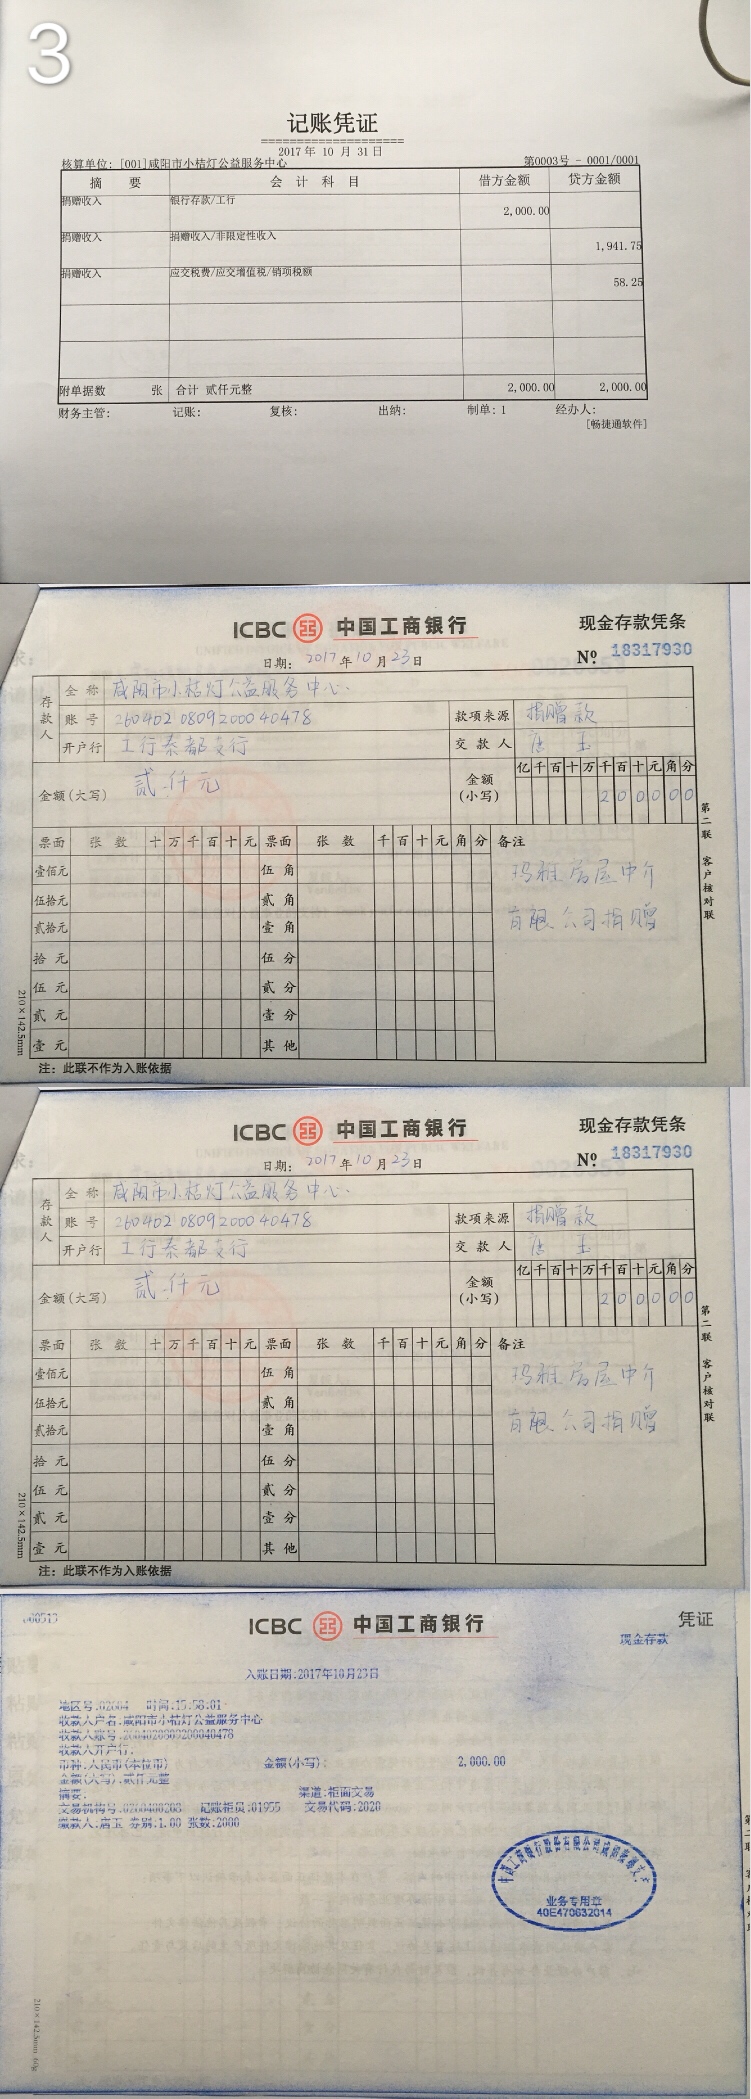 3
记账凭证
2017 年 10 月 31 日
核算单位: [001]咸阳市小桔灯公益服务中心 第0003号 - 0001/0001
摘 要 会 计 科 目 借方金额 贷方金额
捐赠收入 银行存款/工行 2,000.00
捐赠收入 捐赠收入/非限定性收入 1,941.75
捐赠收入 应交税费/应交增值税/销项税额 58.25
附单据数 张 合计 贰仟元整 2,000.00 2,000.00
财务主管: 记账: 复核: 出纳: 制单: 1 经办人:
[畅捷通软件]
ICBC 中国工商银行 现金存款凭条
日期: 2017年10月23日 Nº 18317930
存款人 全称 咸阳市小桔灯公益服务中心
账号 2604020809200040478 款项来源 捐赠款
开户行 工行秦都支行 交款人 唐玉
金额(大写) 贰仟元 金额(小写) 亿千百十万千百十元角分
200000
票面 张数 十万千百十元 票面 张数 千百十元角分 备注
壹佰元 伍角 玛雅房屋中介
伍拾元 贰角
贰拾元 壹角 有限公司捐赠
拾元 伍分
伍元 贰分
贰元 壹分
壹元 其他
注: 此联不作为入账依据
第二联 客户核对联
210×142.5mm
ICBC 中国工商银行 现金存款凭条
日期: 2017年10月23日 Nº 18317930
存款人 全称 咸阳市小桔灯公益服务中心
账号 2604020809200040478 款项来源 捐赠款
开户行 工行秦都支行 交款人 唐玉
金额(大写) 贰仟元 金额(小写) 亿千百十万千百十元角分
200000
票面 张数 十万千百十元 票面 张数 千百十元角分 备注
壹佰元 伍角 玛雅房屋中介
伍拾元 贰角
贰拾元 壹角 有限公司捐赠
拾元 伍分
伍元 贰分
贰元 壹分
壹元 其他
注: 此联不作为入账依据
第二联 客户核对联
210×142.5mm
ICBC 中国工商银行 凭证
现金存款
入账日期:2017年10月23日
地区号:02604 时间:15:58:01
收款人户名:咸阳市小桔灯公益服务中心
收款人账号:2604020809200040478
收款人开户行:
币种:人民币(本位币) 金额(小写): 2,000.00
金额(大写):贰仟元整
摘要: 渠道:柜面交易
记账柜员:01955 交易代码:2020
缴款人:唐玉 券别:1.00 张数:2000
业务专用章
40E470632014
210×142.5mm 60g